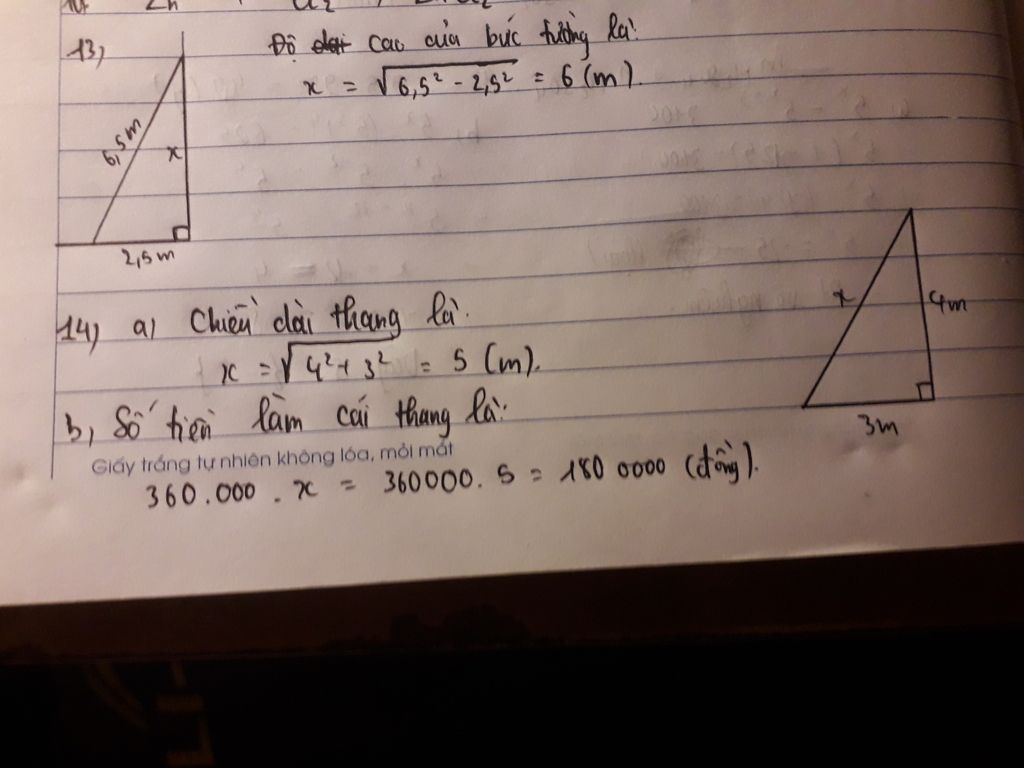 13)
Độ cao của bức tường là:
x = √6,5² - 2,5² = 6 (m).
6,5m
x
2,5m
14) a) Chiều dài thang là:
x = √4² + 3² = 5 (m).
x
4m
3m
b, Số tiền làm cái thang là:
Giấy trắng tự nhiên không lóa, mỏi mắt
360.000 . x = 360000. 5 = 180 0000 (đồng).